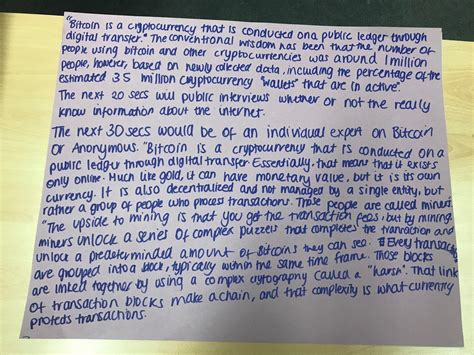 "Bitcoin is a cryptocurrency that is conducted on a public ledger through
digital transfer." The conventional wisdom has been that the number of
people using bitcoin and other cryptocurrencies was around 1 million
people, however, based on newly collected data, including the percentage of the
estimated 35 million cryptocurrency "wallets" that are in active".
The next 20 secs will public interviews whether or not the really
know information about the internet.
The next 30 secs would be of an individual expert on Bitcoin
or Anonymous. "Bitcoin is a cryptocurrency that is conducted on a
public ledger through digital transfer. Essentially, that means that it exists
only online. Much like gold, it can have monetary value, but it is its own
currency. It is also decentralized and not managed by a single entity, but
rather a group of people who process transactions. Those people are called miners.
"The upside to mining is that you get the transaction fees, but by mining,
miners unlock a series of complex puzzels that completes the tranraction and
unlock a predeterminded amount of Bitcoins they can seo. Every transactio
are grouped into a block, typically within the same time frame. Those blocks
are linked together by using a complex cytography called a "harsh". That link
of transaction blocks make a chain, and that complexity is what currently
protects transactions.